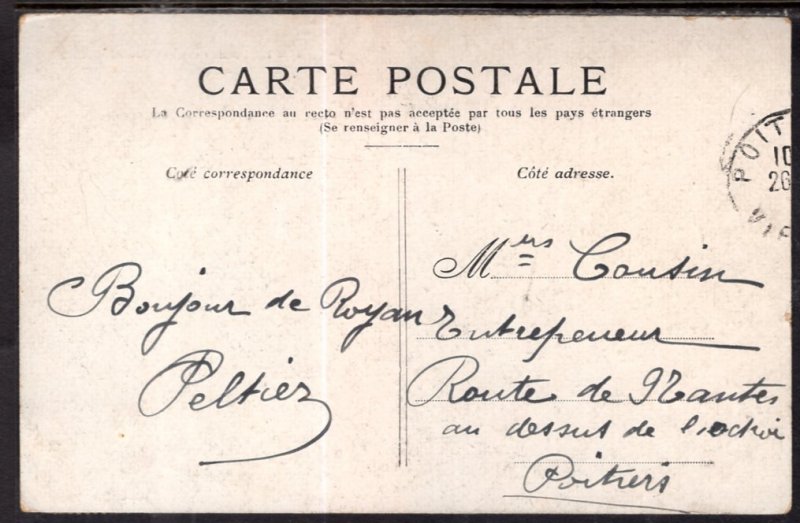 CARTE POSTALE
La Correspondance au recto n'est pas acceptée par tous les pays étrangers
(Se renseigner à la Poste)
Coté correspondance
Côté adresse.
POIT
10
26
VIE
Bonjour de Royan
Peltier
Mrs Cousin
Entrepeneur
Route de Nantes
au dessus de l'octroi
Poitiers